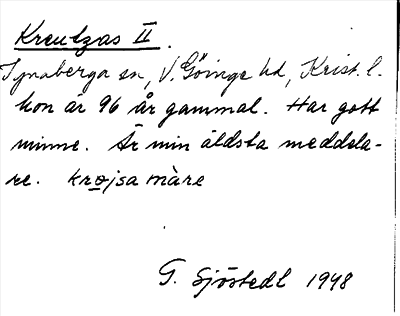 Kreutzas II.
Ignaberga sn, V. Göinge hd, Krist. l.
hon är 96 år gammal. Har gott
minne. Är min äldsta meddela-
re. krojsa màre
G. Sjöstedt 1948